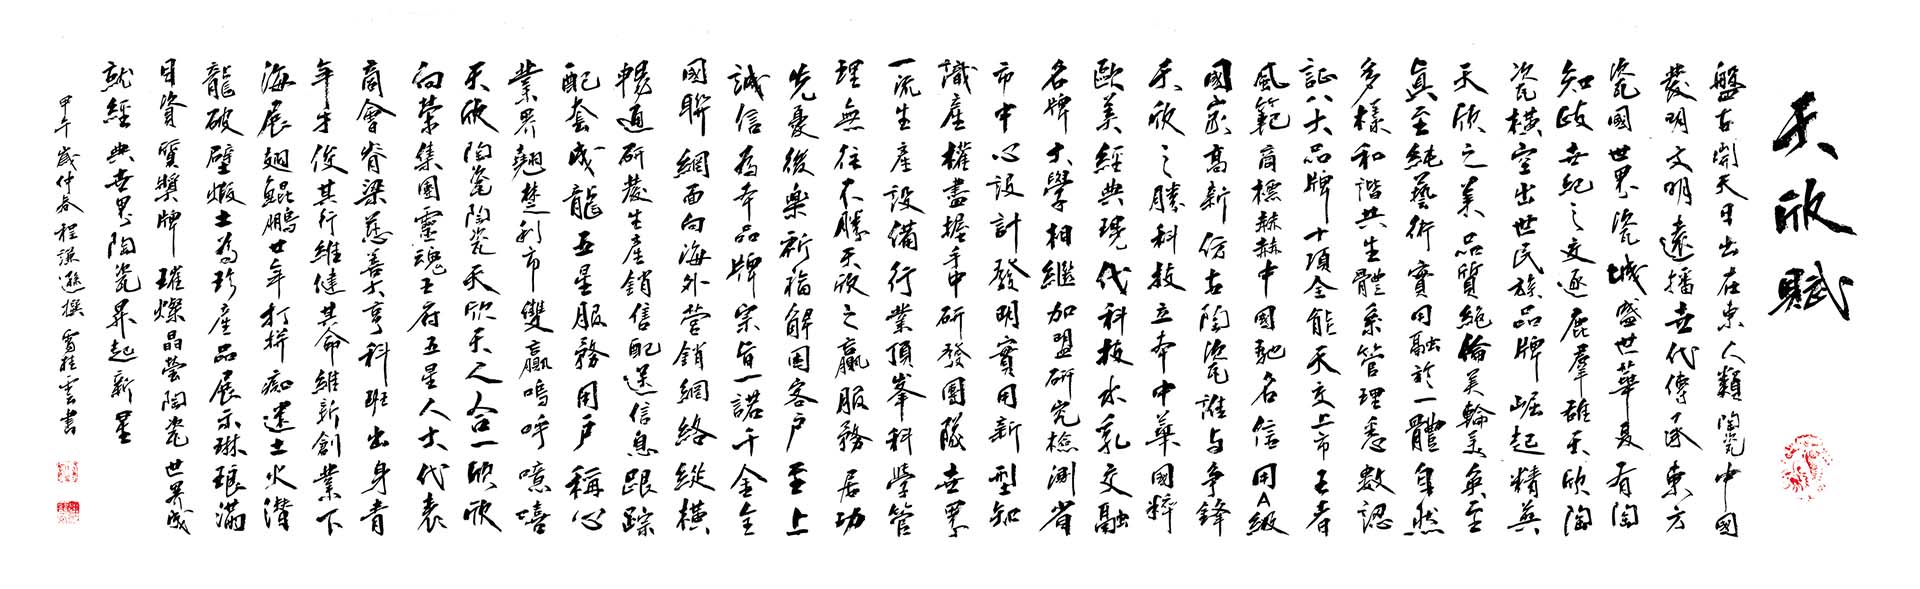 天欣賦
盤古開天日出在東人類陶瓷中國
發明文明遠播世代傳承東方
瓷國世界瓷城盛世華夏有陶
知政世紀之交逐鹿羣雄天欣陶
瓷橫空出世民族品牌崛起精英
天欣之美品質絕倫美輪美奐至
真至純藝術實用融於一體自然
多樣和諧共生體系管理悉數認
証八大品牌十項全能天交上市王者
風範商標赫赫中國馳名信用A級
國家高新仿古陶瓷誰与争鋒
天欣之勝科技立本中華國粹
歐美經典現代科技水乳交融
名牌大學相繼加盟研究檢測省
市中心設計發明實用新型知
識産權盡握手中研發團隊世界
一流生産設備行業頂峯科學管
理無往不勝天欣之贏服務居功
先憂後樂祈福解困客户至上
誠信為本品牌宗旨一諾千金全
國聯網面向海外營銷網絡縱橫
暢通研發生産銷售配送信息跟踪
配套成龍五星服務用户稱心
業界翹楚利市雙贏嗚呼噫嘻
天欣陶瓷陶瓷天欣天人合一欣欣
向榮集團靈魂王府五星人大代表
商會脊梁慈善大亨科班出身青
年才俊其行維健其命維新創業下
海展翅鯤鵬廿年打拌痴迷土火潛
龍破壁煅土為珍産品展示琳琅滿
目資質獎牌璀燦晶瑩陶瓷世界成
就經典世界陶瓷昇起新星
甲午歲仲春程謙遜撰 桂雲書